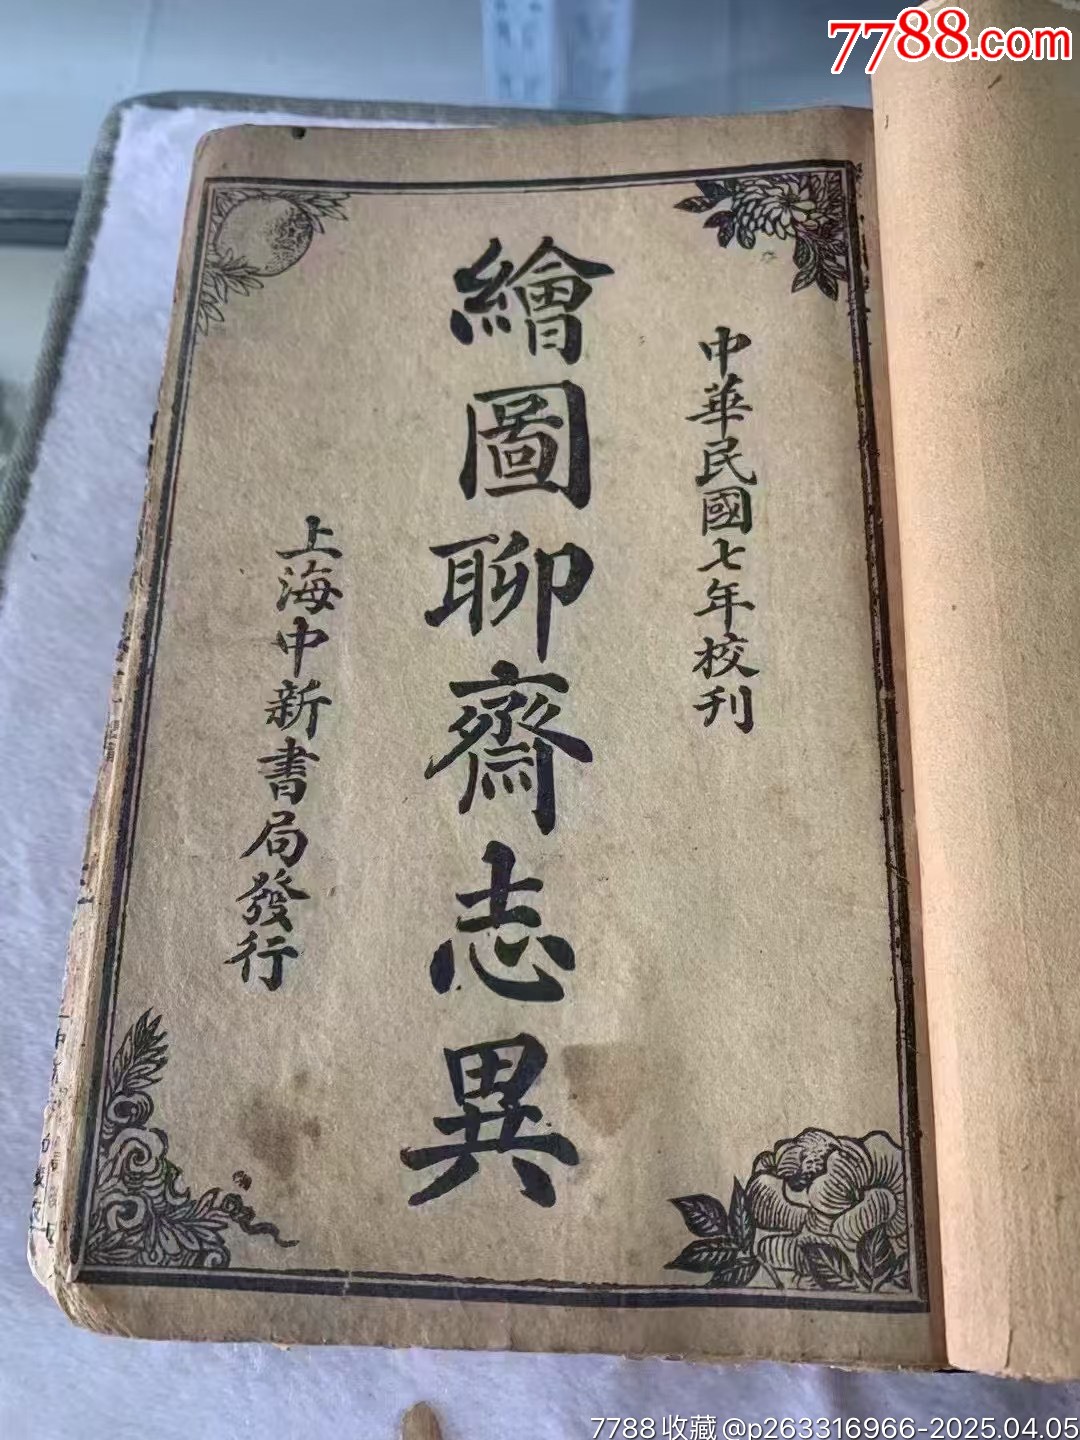 7788.com
中華民國七年校刊
繪圖聊齋志異
上海中新書局發行
7788收藏@p263316966-2025.04.05